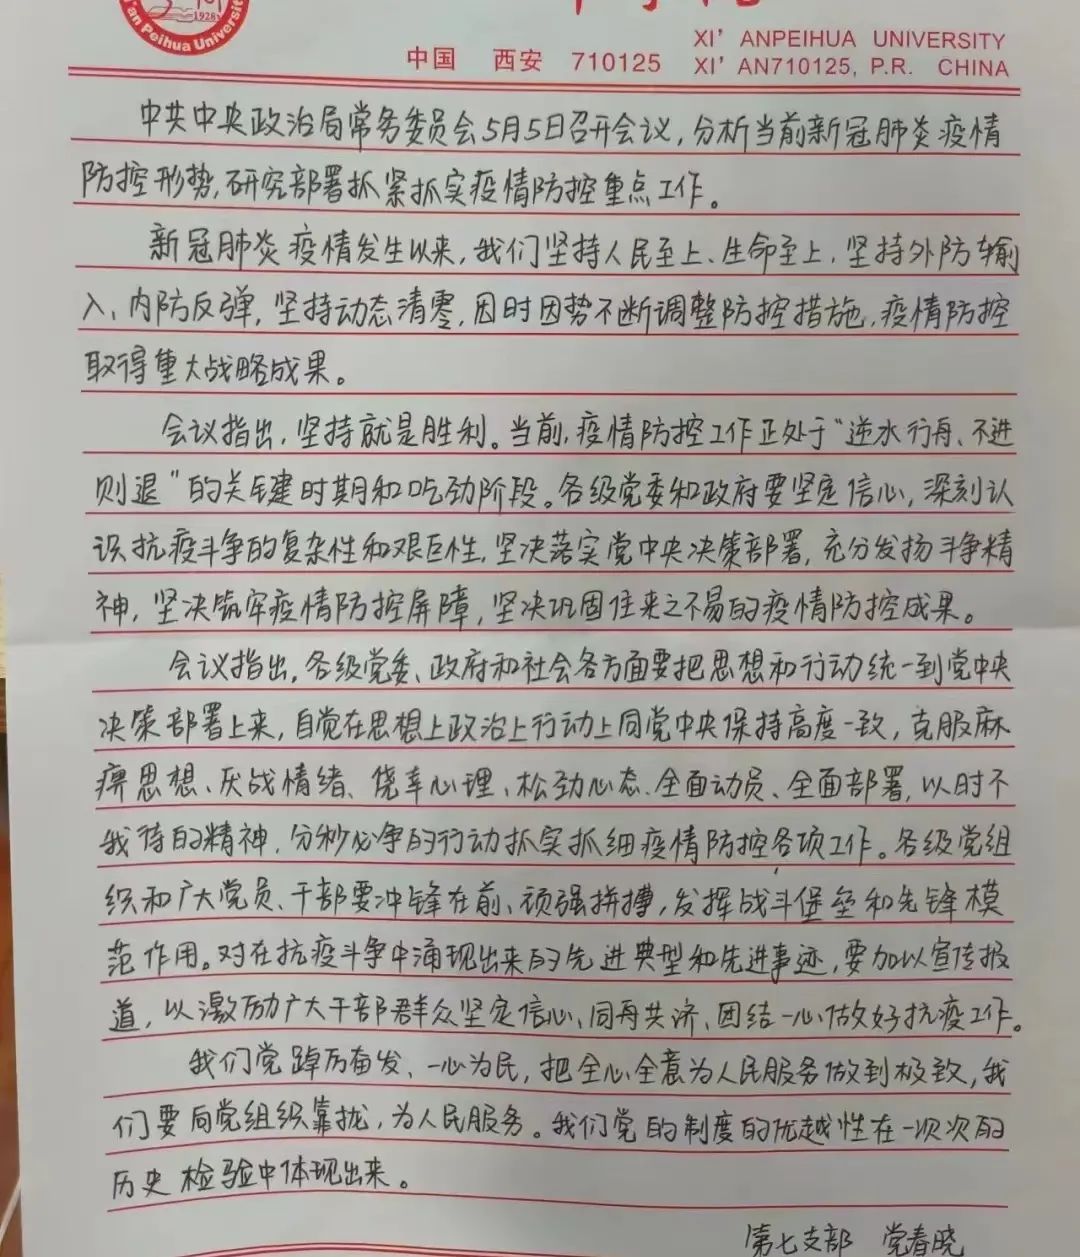 1928
Xi'an Peihua University
中国 西安 710125
XI' ANPEIHUA UNIVERSITY
XI' AN710125, P.R. CHINA
中共中央政治局常务委员会5月5日召开会议,分析当前新冠肺炎疫情
防控形势,研究部署抓紧抓实疫情防控重点工作。
新冠肺炎疫情发生以来,我们坚持人民至上、生命至上,坚持外防输
入、内防反弹,坚持动态清零,因时因势不断调整防控措施,疫情防控
取得重大战略成果。
会议指出,坚持就是胜利。当前,疫情防控工作正处于“逆水行舟、不进
则退”的关键时期和吃劲阶段。各级党委和政府要坚定信心,深刻认
识抗疫斗争的复杂性和艰巨性,坚决落实党中央决策部署,充分发扬斗争精
神,坚决筑牢疫情防控屏障,坚决巩固住来之不易的疫情防控成果。
会议指出,各级党委、政府和社会各方面要把思想和行动统一到党中央
决策部署上来,自觉在思想上政治上行动上同党中央保持高度一致,克服麻
痹思想、厌战情绪、侥幸心理、松劲心态、全面动员、全面部署,以时不
我待的精神,分秒必争的行动抓实抓细疫情防控各项工作。各级党组
织和广大党员、干部要冲锋在前、顽强拼搏,发挥战斗堡垒和先锋模
范作用。对在抗疫斗争中涌现出来的先进典型和先进事迹,要加以宣传报
道,以激励广大干部群众坚定信心、同舟共济、团结一心做好抗疫工作。
我们党踔厉奋发、一心为民,把全心全意为人民服务做到极致,我
们要向党组织靠拢,为人民服务。我们党的制度的优越性在一次次的
历史检验中体现出来。
第七支部 党春晓